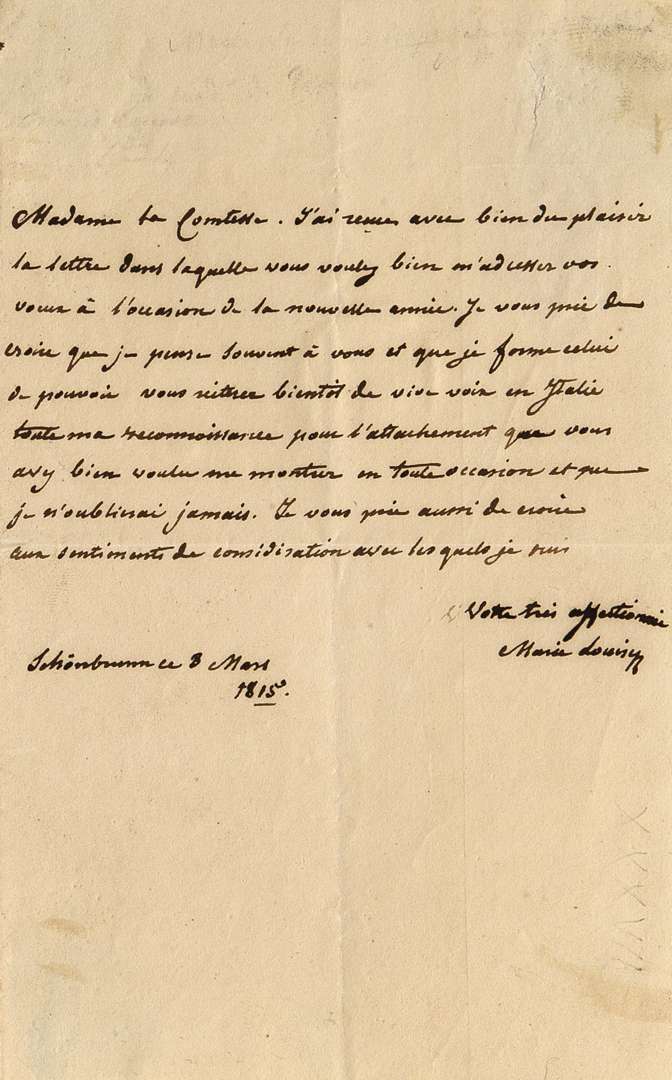 Madame la Comtesse. J'ai reçue avec bien du plaisir
la lettre dans laquelle vous voulez bien m'adresser vos
voeux à l'occasion de la nouvelle année. Je vous prie de
croire que je pense souvent à vous et que je forme celui
de pouvoir vous réiterer bientôt de vive voix en Italie
toute ma reconnoissance pour l'attachement que vous
avez bien voulu me montrer en toute occasion et que
je n'oublierai jamais. Je vous prie aussi de croire
aux sentiments de considération avec lesquels je suis
Votre très affectionnée
Marie Louise
Schönbrunn ce 3 Mars
1815.
XXXVIII